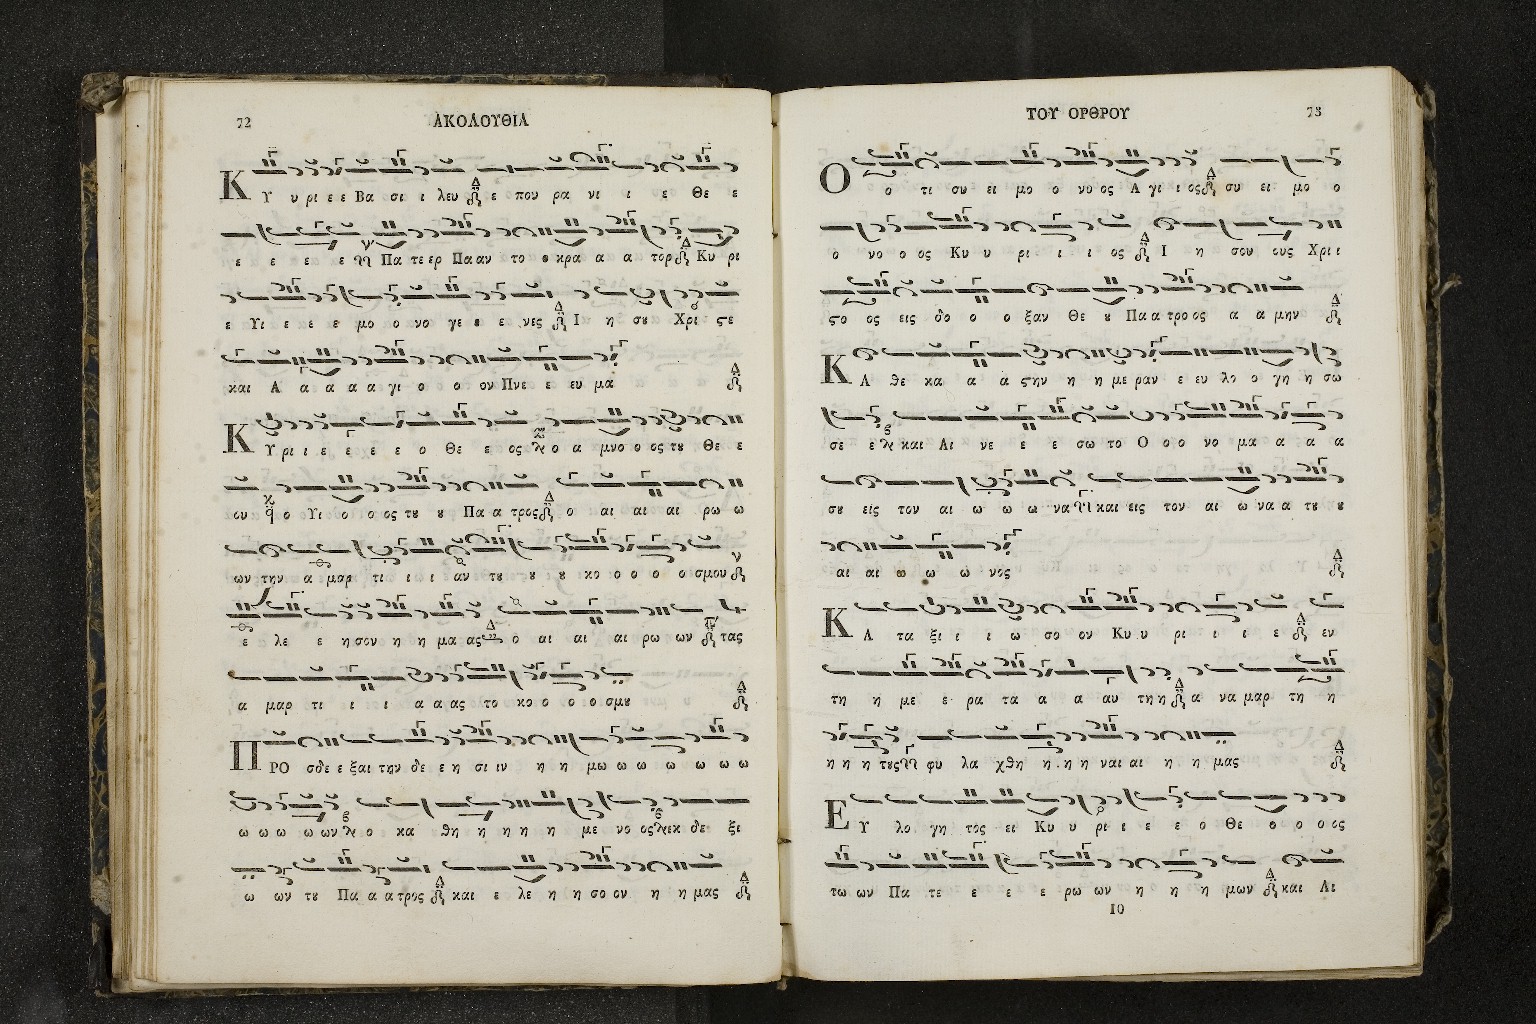 72
ΑΚΟΛΟΥΘΙΑ
Κ Υ υ ρι ε ε Βα σι ι λευ ε που ρα νι ι ε Θε ε
ε ε ε ε Πα τε ερ Πα αν το ο κρα α α τορ Κυ ρι
ε Υι ε ε ε μο ο νο γε ε ε νες Ι η σου Χρι ϛε
και Α α α α α γι ο ο ον Πνε ε ευ μα
Κ Υ ρι ι ε ε ε ε ο Θε ε ος ο α μνο ο ος του Θε ε
ου ο Υι ο ο ος του υ Πα α τρος ο αι αι αι ρω ω
ων την α μαρ τι ι ι αν του ου ου κο ο ο ο ο σμου
ε λε ε η σον η η μα ας ο αι αι αι ρω ων τας
α μαρ τι ι ι α α ας το κο ο ο ο σμου
Π ΡΟ σδε ε ξαι την δε ε η σι ιν η η μω ω ω ω ω ω ω
ω ω ω ω ων ο κα θη η η η η με νο ος εκ δε ξι
ω ων του Πα α α τρος και ε λε η η σο ον η η μας
ΤΟΥ ΟΡΘΡΟΥ
73
Ο ο τι συ ει μο ο νο ος Α γι ι ος συ ει μο ο
ο νο ο ος Κυ υ ρι ι ι ος Ι η σου ους Χρι ι
ϛο ος εις δο ο ο ξαν Θε ου Πα α τρο ος α α μην
Κ Α θε κα α α ϛην η η με ραν ε ευ λο ο γη η σω
σε ε και Αι νε ε ε σω το Ο ο ο νο μα α α α
σου εις τον αι ω ω ω να και εις τον αι ω να α του ου
αι αι ω ω ω νος
Κ Α τα ξι ι ι ω σο ον Κυ υ ρι ι ι ε εν
τη η με ε ρα τα α α αυ τη η α να μαρ τη η
η η η τους φυ λα χθη η η η ναι αι η η μας
Ε Υ λο γη τος ει Κυ υ ρι ι ε ε ο Θε ο ο ο ος
τω ων Πα τε ε ε ε ρω ων η η η μων και Αι
10